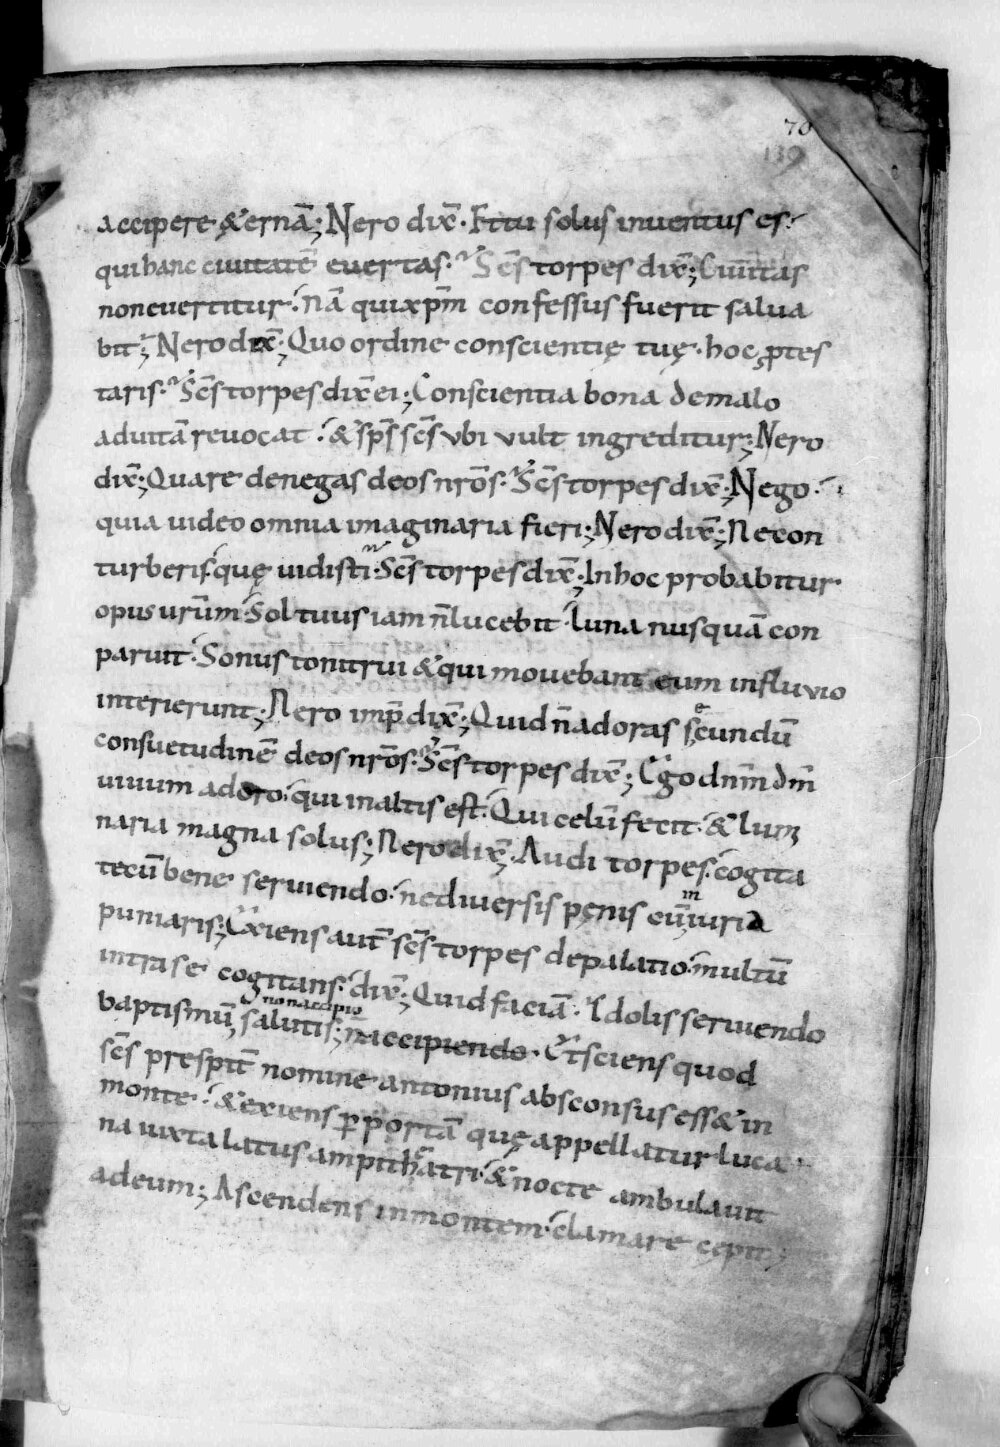 70
139
accipere &ernā; Nero dix̄· Et tu solus inuentus es·
qui hanc ciuitatē euertas· Sc̄s torpes dix̄; Ciuitas
non euertitur· Nā qui xp̄m confessus fuerit salua
bit; Nero dix̄; Quo ordine conscientię tuę· hoc ꝓtes
taris· Sc̄s torpes dix̄ ei; Conscientia bona de malo
ad uitā reuocat· & sp̄s sc̄s vbi vult ingreditur; Nero
dix̄; Quare denegas deos nr̄os· Sc̄s torpes dix̄; Nego·
quia uideo omnia imaginaria fieri; Nero dix̄; Ne con
turberis· quę uidisti· Sc̄s torpes dix̄; In hoc probabitur
opus ur̄um· Sol tuus iam n̄ lucebit· luna nusquā con
paruit· Sonus tonitrui & qui mouebant eum in fluuio
interierunt; Nero imp̄ dix̄; Quid n̄ adoras secundū
consuetudinē deos nr̄os· Sc̄s torpes dix̄; Ego dn̄m dm̄
uiuum adoro· qui in altis est· Qui celū fecit· & lumi
naria magna solus; Nero dix̄; Audi torpes· cogita
tecū bene seruiendo· ne diuersis pęnis cū iniuria
puniaris; Exiens aut̄ sc̄s torpes de palatio· multū
intra se cogitans· dix̄; Quid faciā· Idolis seruiendo
non accipio
baptismū salutis; n̄ accipiendo· Et sciens quod
sc̄s prespit̄ nomine antonius absconsus ess& in
monte· & exiens ꝑ portā quę appellatur luca
na iuxta latus ampithęatri· & nocte ambulauit
ad eum; Ascendens in montem· clamare cępit;